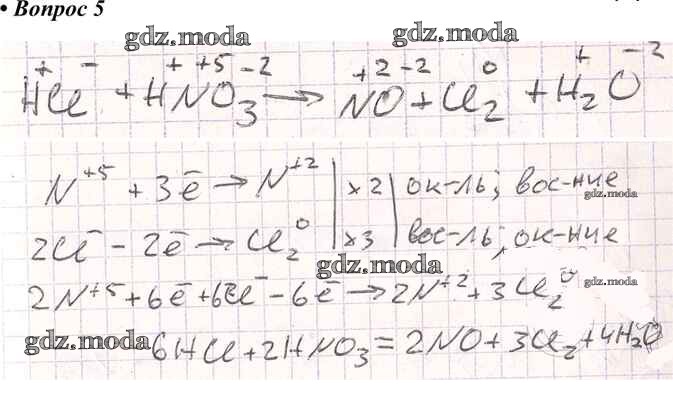 • Вопрос 5
gdz.moda gdz.moda
H⁺Cl⁻ + H⁺N⁺⁵O₃⁻² → N⁺²O⁻² + Cl₂⁰ + H₂⁺O⁻²
N⁺⁵ + 3ē → N⁺² | ×2 | ок-ль; вос-ние
gdz.moda
2Cl⁻ – 2ē → Cl₂⁰ | ×3 | вос-ль, ок-ние
gdz.moda
2N⁺⁵ + 6ē + 6Cl⁻ – 6ē → 2N⁺² + 3Cl₂⁰ gdz.moda
gdz.moda 6HCl + 2HNO₃ = 2NO + 3Cl₂ + 4H₂O